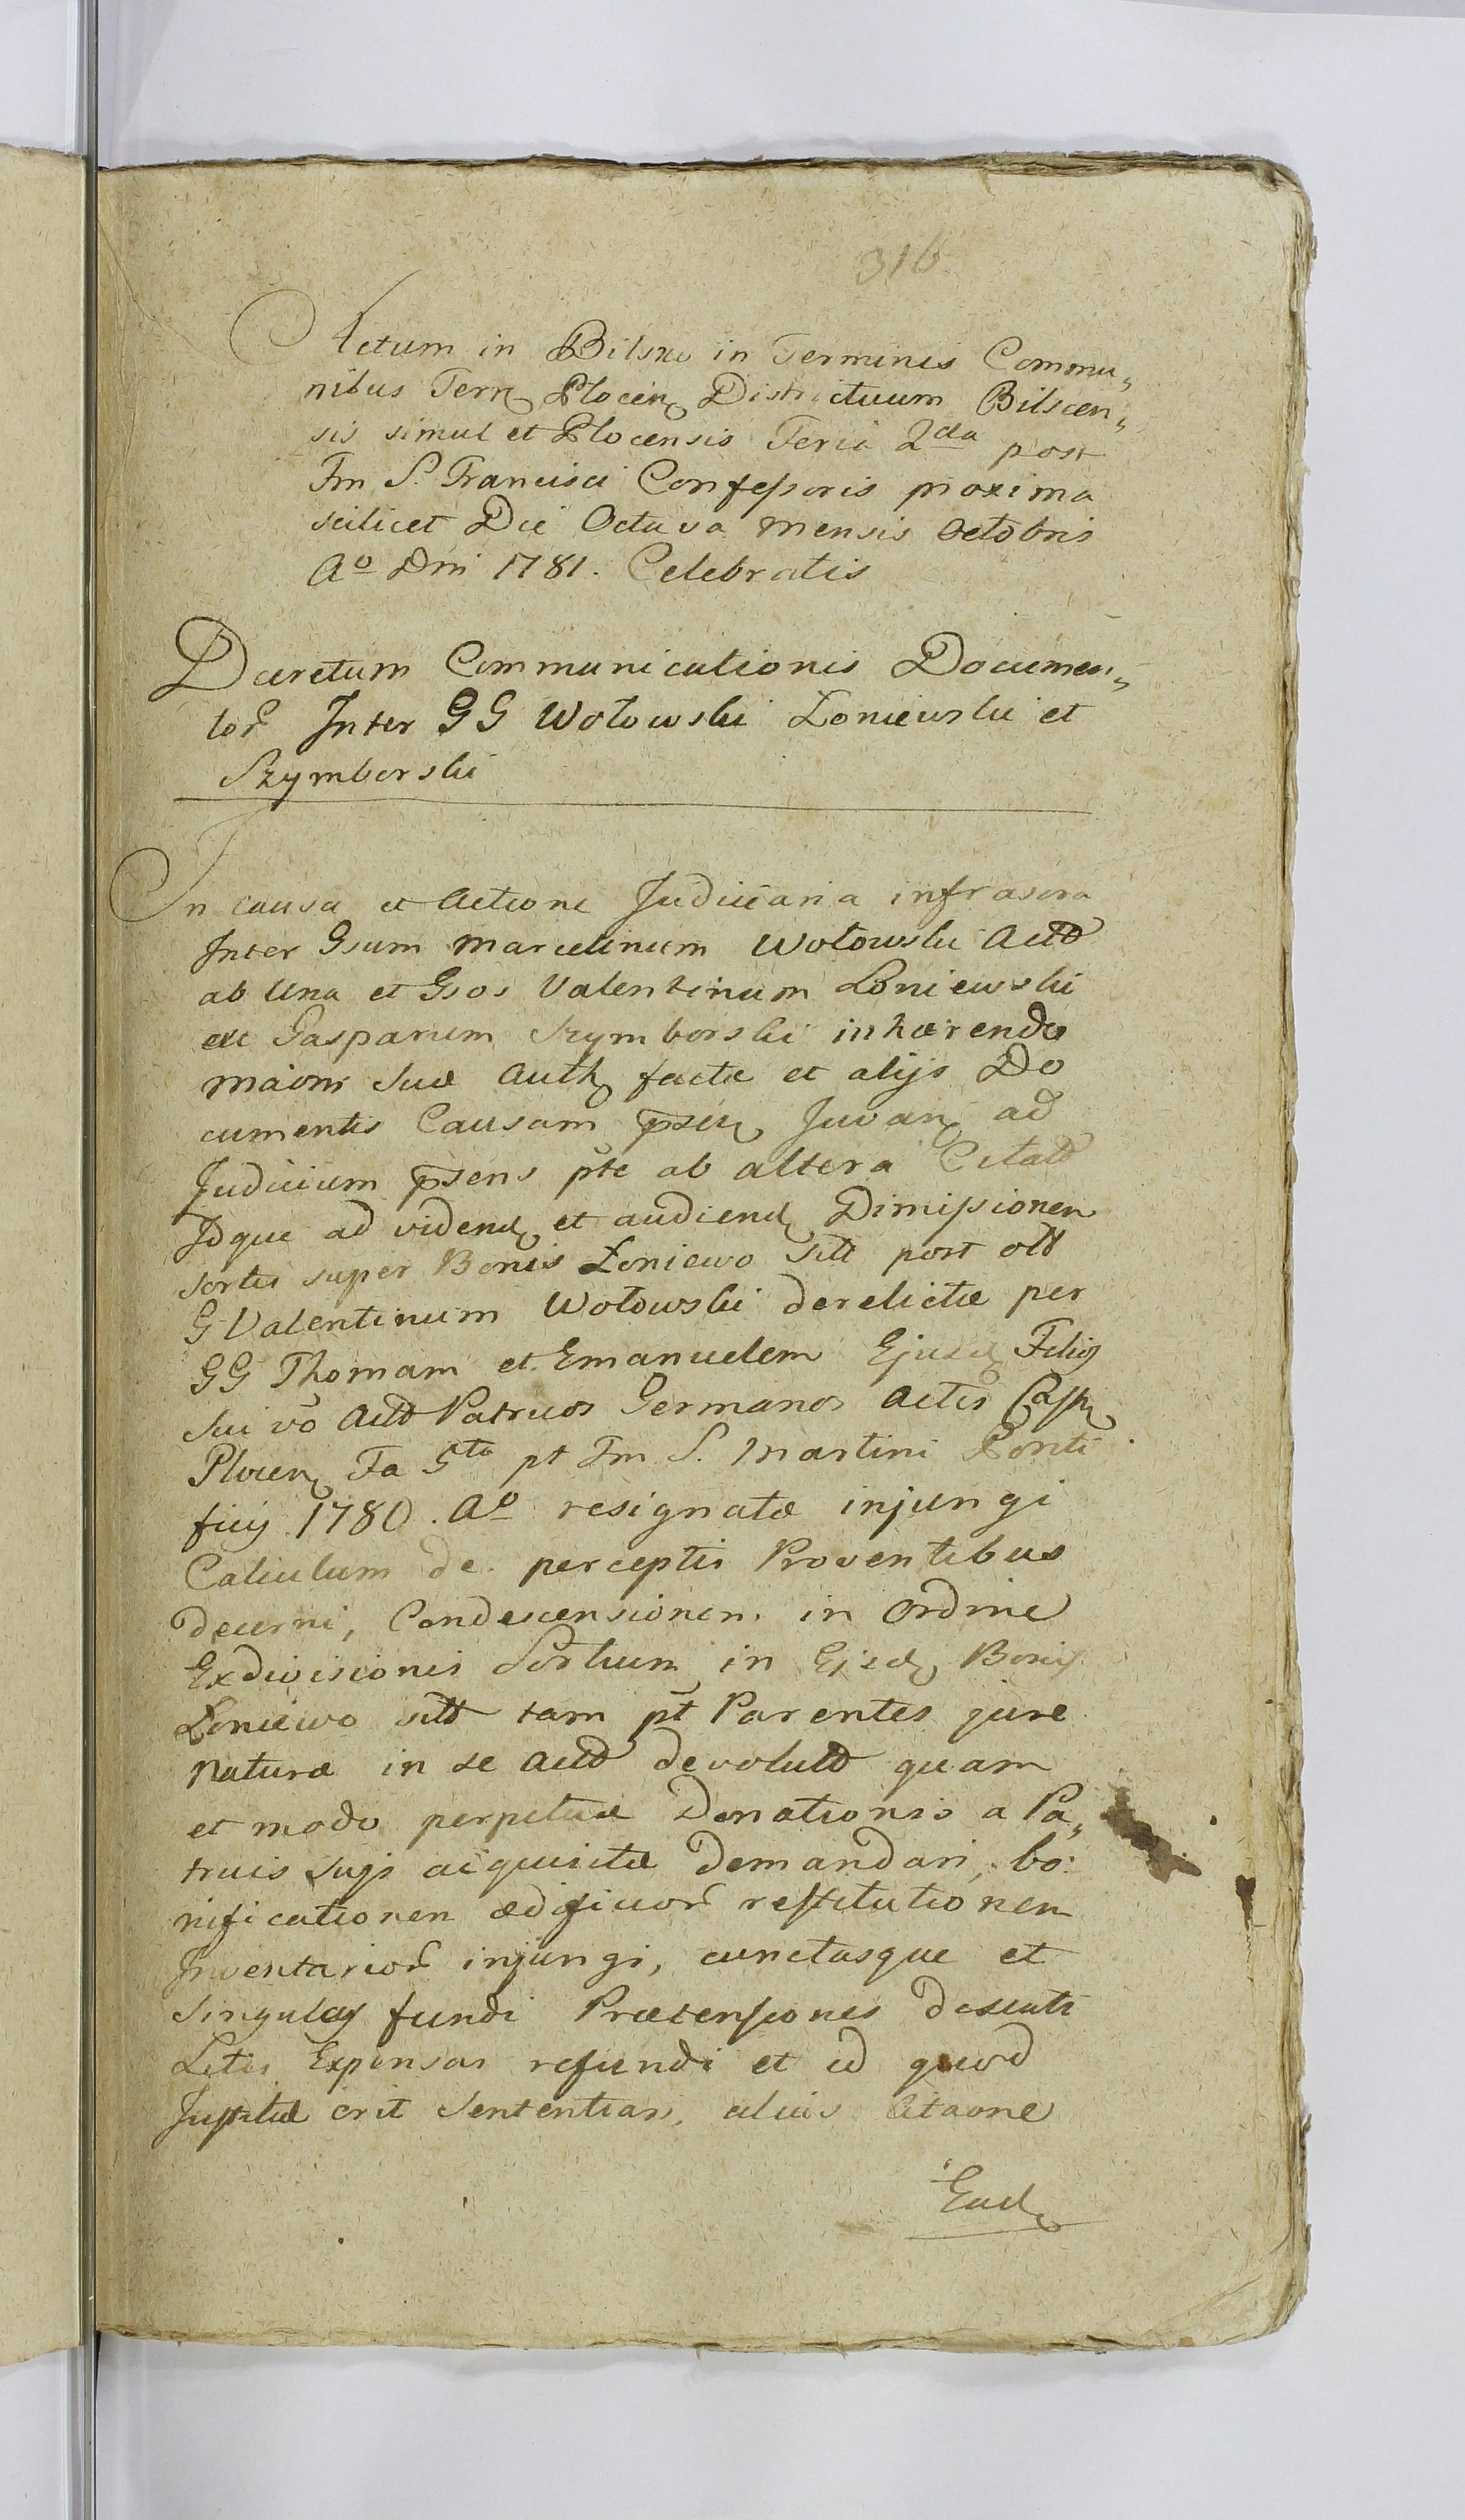 316
Actum in Bilsko in Terminis Commu„
nibus Terrӕ Plocen Districtuum Bilscen„
sis simul et Plocensis Feria 2da post
Fm S. Francisci Confessoris proxima
scilicet Die Octava mensis octobris
Ao Dni 1781. Celebratis
Decretum Communicationis Documen„
tor Inter GG Wołowski Łoniewski et
Szymborski
In causa et Actione Judiciaria infrascra
Inter Gsum Marcelinum Wołowski Act
ab Una et Gsos Valentinum Łoniewski
ac Gasparum Szymborski inhærendo
maioni suæ Auth factæ et alijs Do
cumentis Causam psen Juvan ad
Judicium psens pte ab altera Citat
Idque ad videnđ et audienđ Dimissionem
sortis super Bonis Łoniewo sitt post olt
G Valentinum Wołowski derelictæ per
GG Thomam et Emanuelem Ejusđ Filios
sui vo Act Patruos Germanos Actis Castr
Plocen Fa 5ta pt Fm S. Martini Ponti
ficis 1780. Ao resignatæ injungi
Calculum de perceptis Proventibus
decerni, Condescensionem in ordine
Exdivisionis Sortium in Ejsđ Bonis
Łoniewo sitt tam pt Parentes jure
naturæ in se Act devolut quam
et modo perpetuæ Donationis a Pa„
truis suis acquisitæ demandari, bo
nificationem ædificior restitutionem
Inventarior injungi, cunctasque et
singulas fundi Prætensiones discuti
Litis Expensas refundi et id quod
Justitiæ erit Sententiari, alias Citaone
Eađ